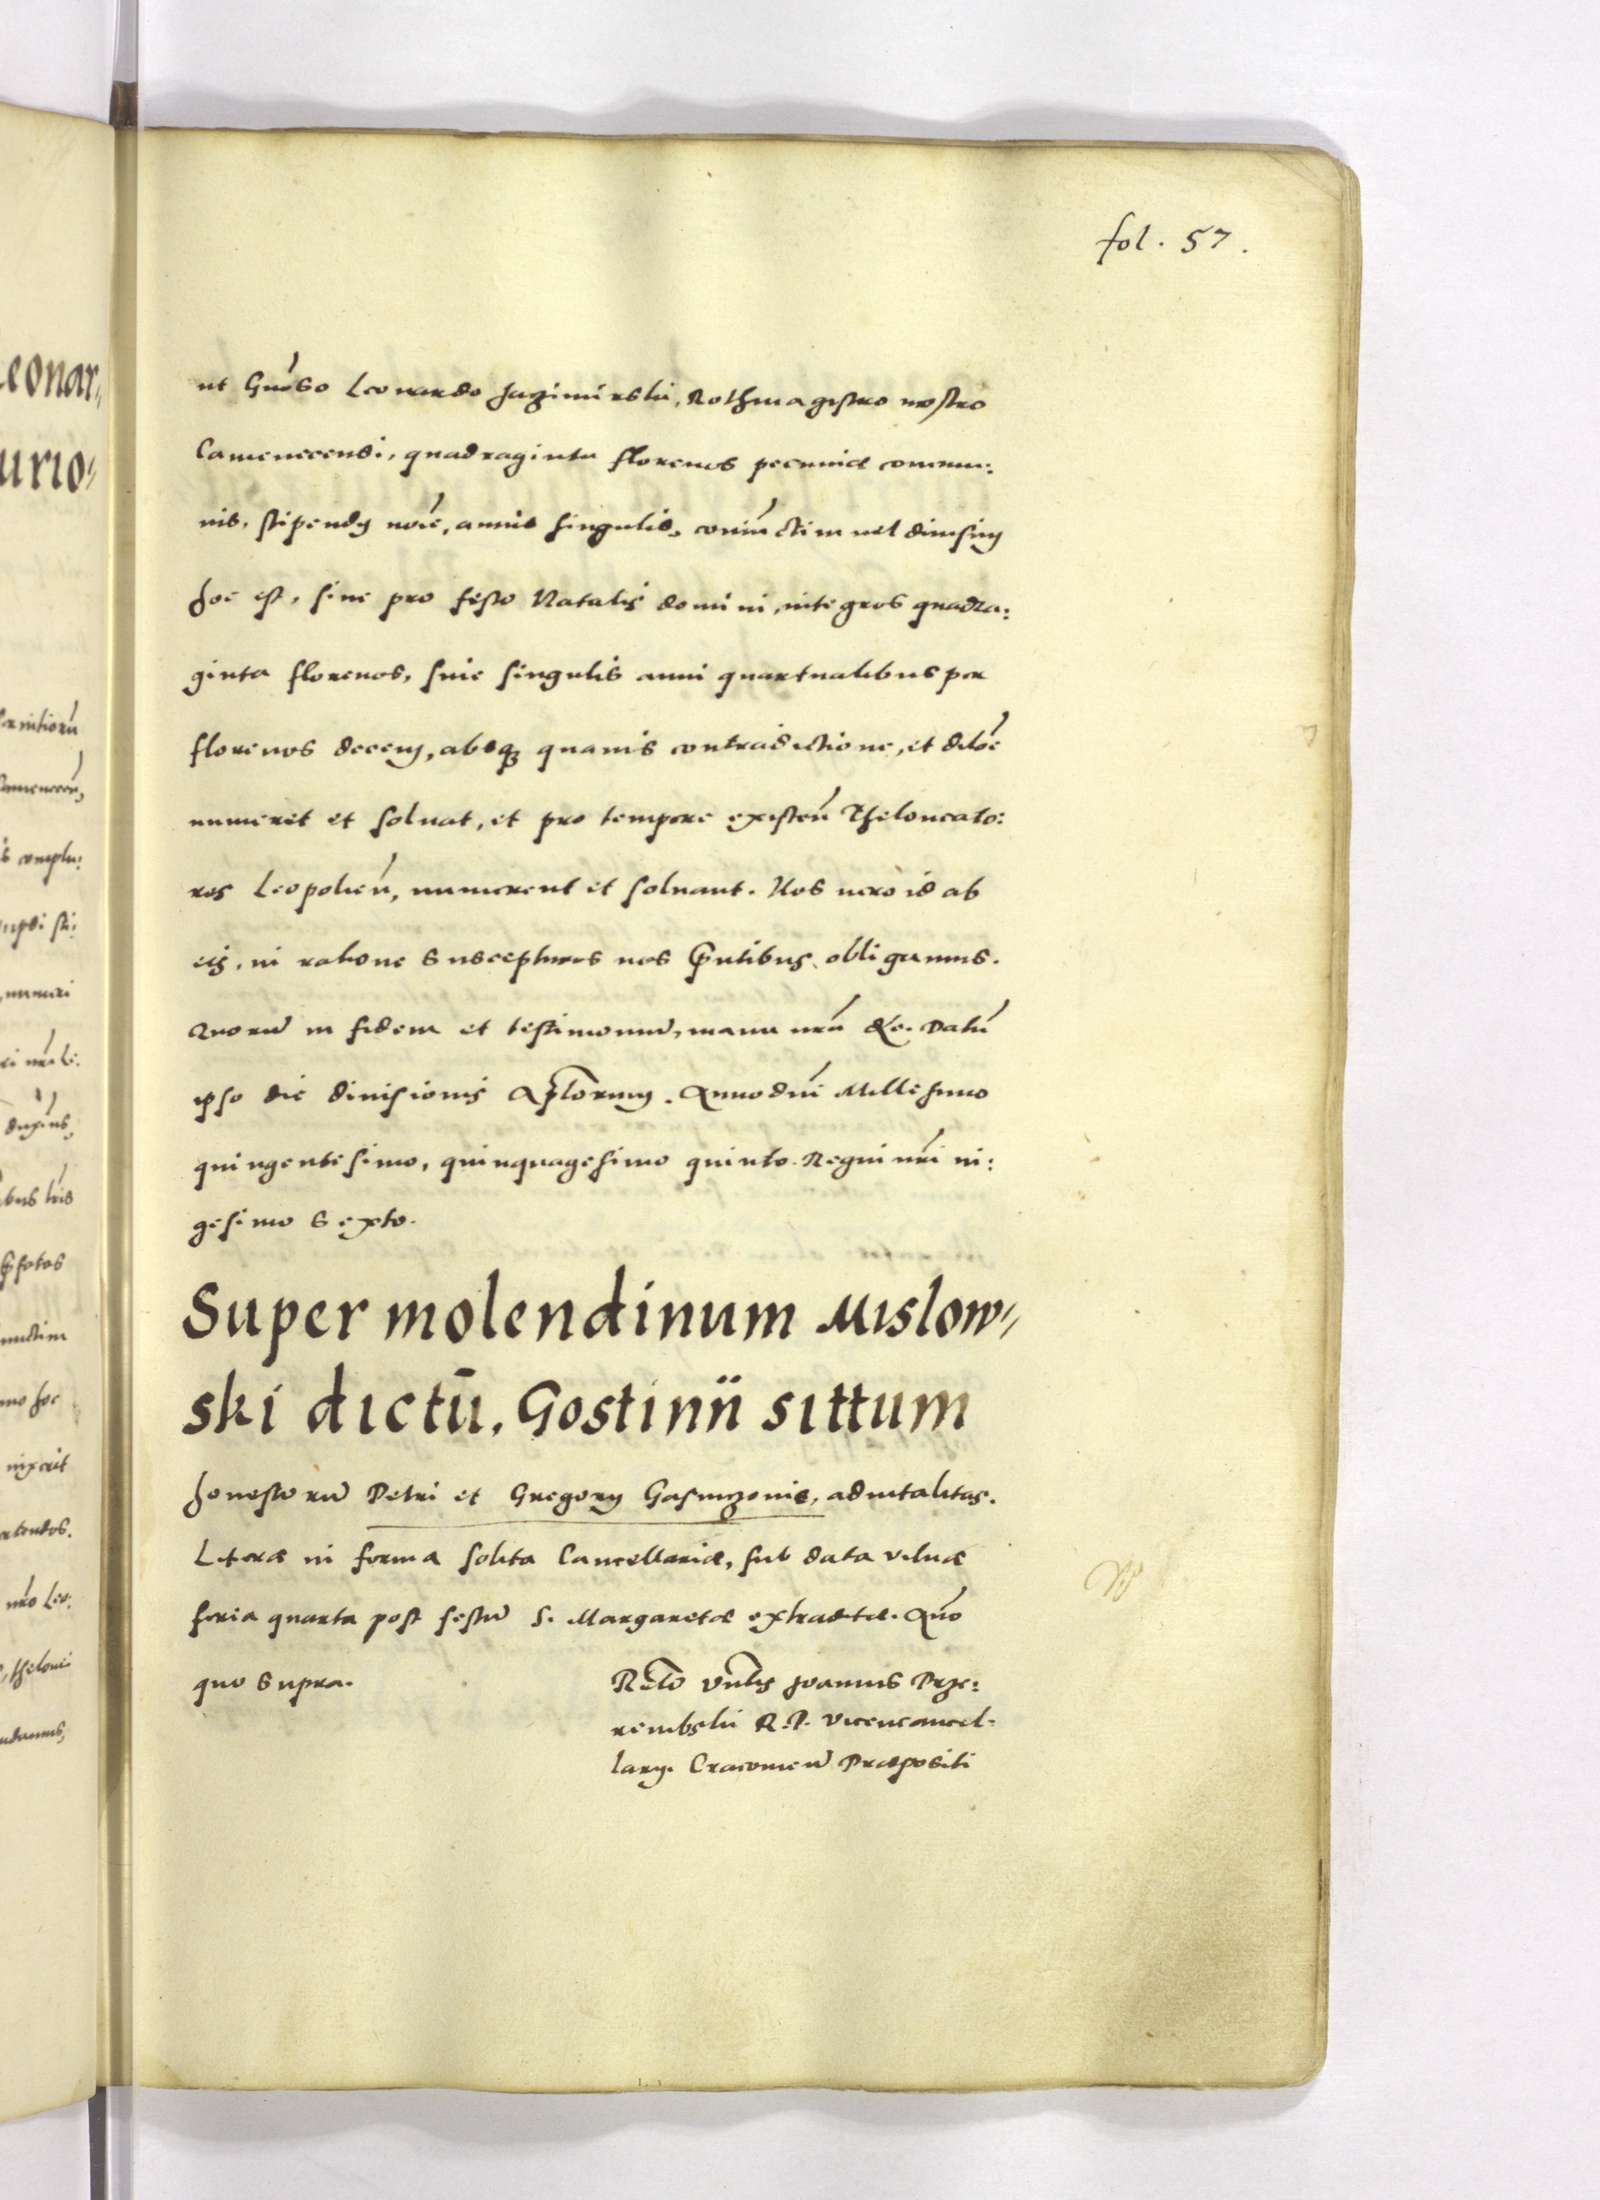 fol. 57.
ut Gnoso Leonardo Jazimirskii, Rothmagistro nostro
Camenecensi, quadraginta florenos pecuniæ commu:
nis, stipendij noie, annis singulis, coniunctim uel diuisim
hoc est, siue pro festo Natalis domini, integros quadra:
ginta florenos, siue singulis anni quartualibus per
florenos decem, absq quauis contradictione, et diloe
numeret et soluat, et pro tempore existen Theloneato:
res Leopolien, numerent et soluant. Nos uero id ab
eis, in ratione suscepturos nos pntibus obligamus.
Quorum in fidem et testimonium, manu nra &c. Datum
ipso die diuisionis Aplorum. Anno dni Millesimo
quingentesimo, quinquagesimo quinto. Regni nri ui:
gesimo sexto.
Super molendinum Mislow//
ski dictū, Gostinii sittum
honestorum Petri et Gregorij aduitalitas.
Literæ in forma solita Cancellariæ, sub data Vilnæ
feria quarta post festum S. Margaretæ extradtæ. Anno
quo supra.
Relo Vnlis Joannis Prze:
rembskii R. P. Vicecancel:
larij. Cracouien Præpositi